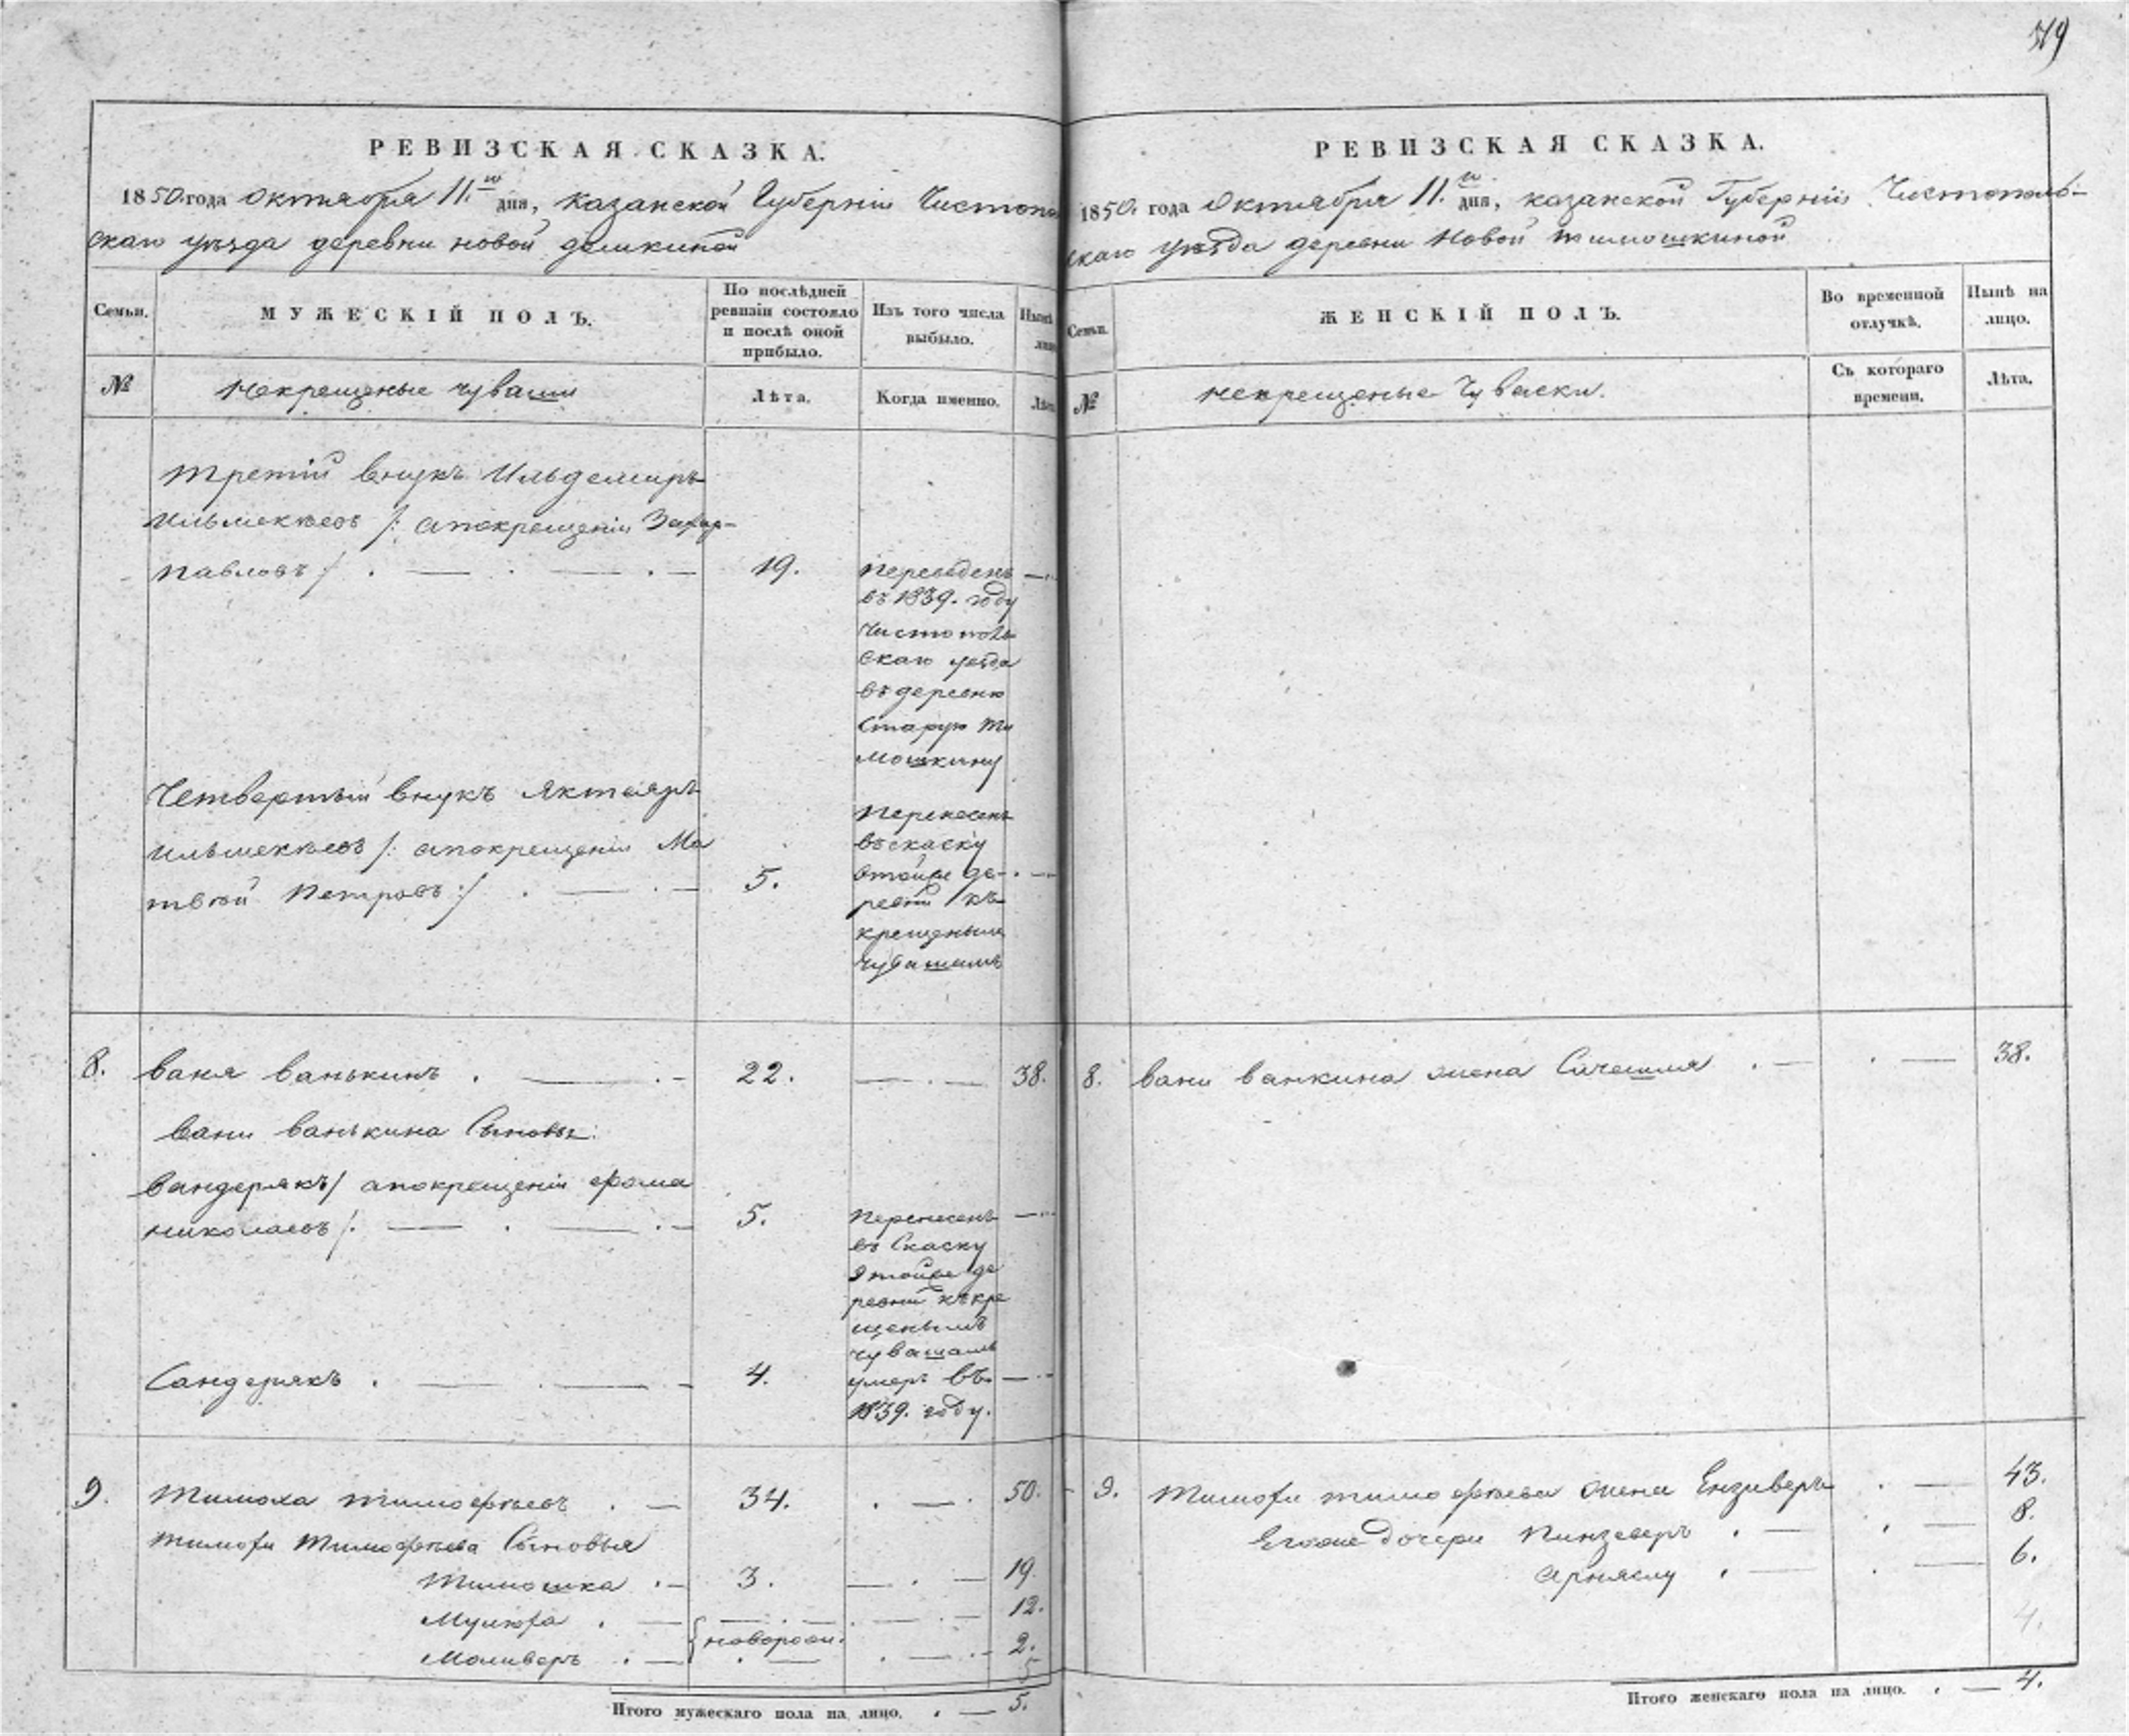 РЕВИЗСКАЯ СКАЗКА.
1850. года октября 11.го дня, казанской Губернiи Чистопо
скаго уѣзда деревни новой
Семьи.
МУЖЕСКIЙ ПОЛЪ.
По послѣдней ревизiи состояло и послѣ оной прибыло.
Изъ того числа выбыло.
№
некрещеные чуваши
Лѣта.
Когда именно.
третiй внукъ Ильдемиръ
Ильмекѣевъ /: апокрещенiи
павловъ :/ . — . — . — 19. переведенъ
въ 1839. году
чистополь
скаго уѣзда
въ деревню
Старую ти
мошкину
Четвертый внукъ
Ильмекѣевъ /: апокрещенiи Ма
твѣй петровъ :/ . — . — 5.
перенесенъ
въ скаску
этойже де-
ревни къ
крещенымъ
чувашамъ
8. ваня ванькинъ . — . — 22. — . — 38.
вани ванькина Сыновья:
вандерякъ / апокрещенiи фома
николаевъ /: — . — . — 5. перенесенъ
въ Скаску
этойже де
ревни къ кре
щенымъ
чувашамъ
Сандерякъ . — . — 4. умеръ въ
1839. году.
9. тимоха тимофѣевъ . — 34. . — . 50.
тимофи тимофѣева Сыновья
тимошка . — 3. — . — 19.
Мулюфа . — . — 12.
{новорож.
Маливеръ . — . — 2.
5
Итого мужескаго пола на лицо. . — 5.
519
РЕВИЗСКАЯ СКАЗКА.
1850. года октября 11.го дня, казанской Губернiи Чистополь-
скаго уѣзда деревни новой тимошкиной
Семьи.
ЖЕНСКIЙ ПОЛЪ.
Во временной отлучкѣ.
Нынѣ на лицо.
№
некрещеные Чуваски.
Съ котораго времени.
Лѣта.
8. вани ванкина жена . — . — 38.
9. тимофи тимофѣева жена Ензиверъ . — 43.
Егоже дочери пинзеверъ . — . — 8.
арняслу . — . — 6.
4.
Итого женскаго пола на лицо. . — 4.